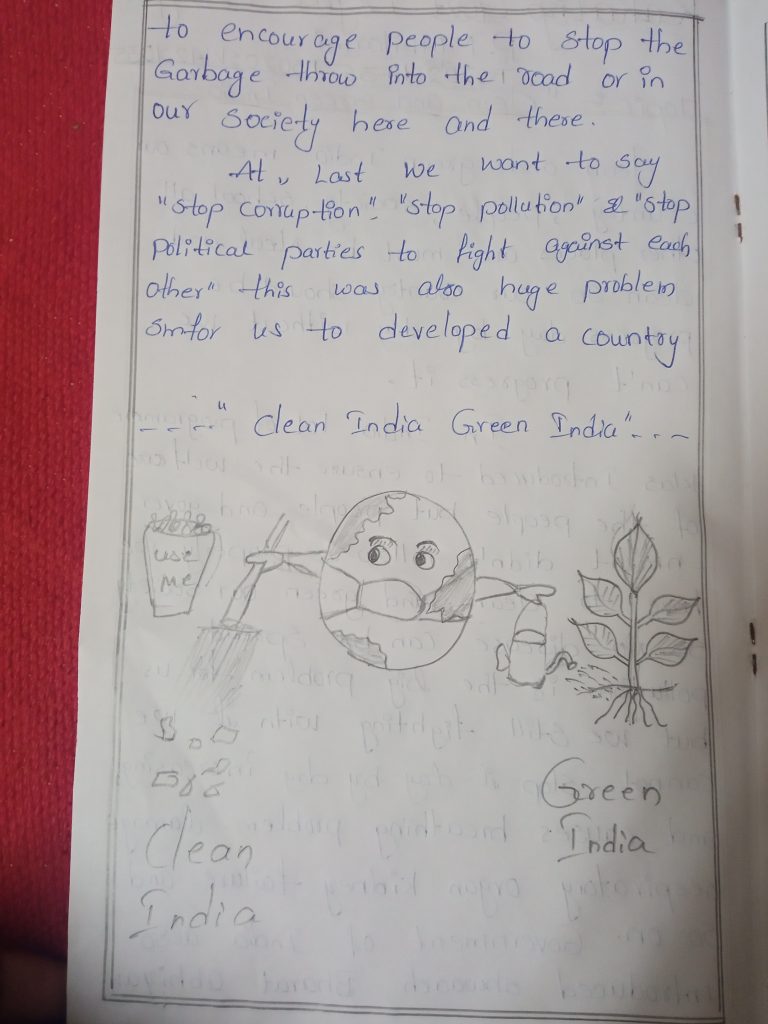 to encourage people to stop the
Garbage throw into the road or in
our society here and there.
At, Last we want to say
"stop corruption". "stop pollution" & "stop
political parties to fight against each
other" this was also huge problem
for us to developed a country
---" Clean India Green India"---
use
me
Green
India
Clean
India